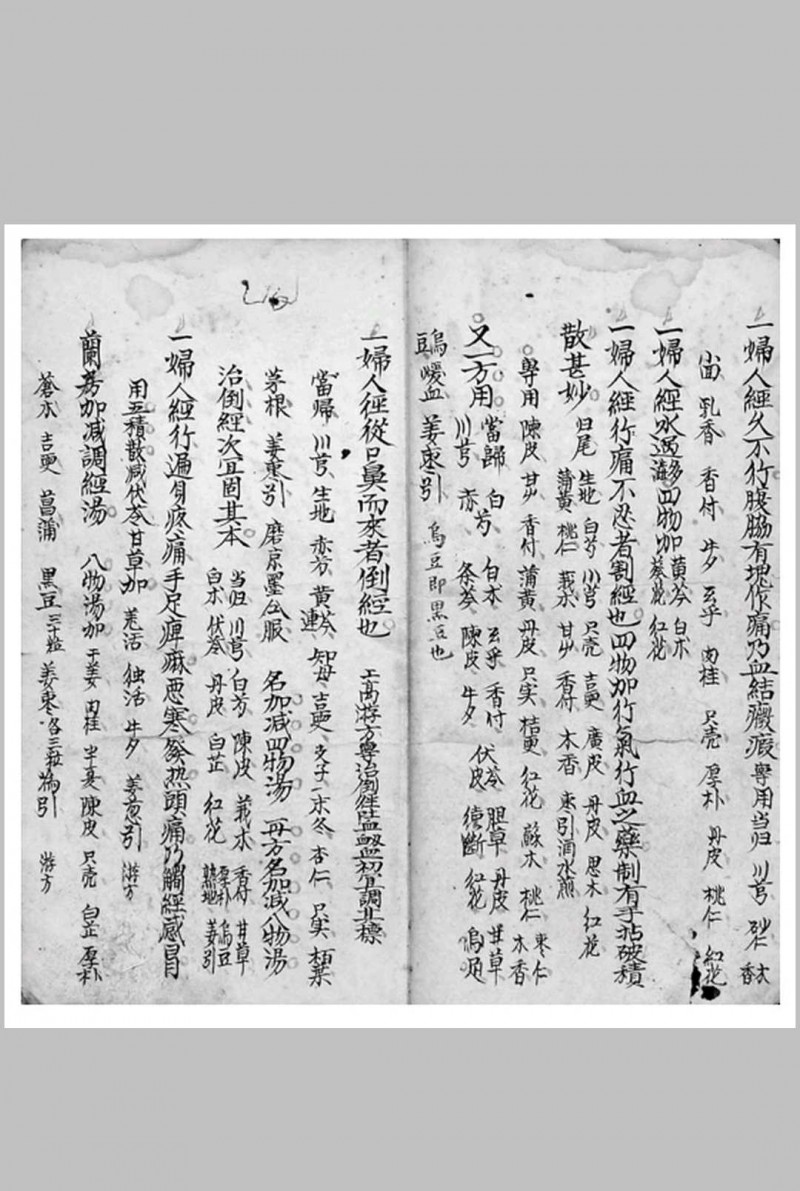 一婦人經久不行腰脇有塊作痛乃血結癥瘕專用当归 川芎 砂仁 木香
茴 乳香 香付 牛夕 玄乎 肉桂 只壳 厚朴 丹皮 桃仁 紅花
一婦人經水過多 四物加 黄芩 白朮 葵花 紅花
一婦人經行痛不忍者割經也四物加行氣行血之藥制有手拈破積
散甚妙 归尾 生地 白芍 川芎 只壳 吉更 廣皮 丹皮 思木 紅花
蒲黄 桃仁 莪朮 甘艸 香付 木香 枣引酒水煎
專用 陳皮 甘艸 香付 蒲黄 丹皮 只実 桔更 紅花 蘇木 桃仁 枣仁 木香
又一方用 當歸 白芍 白朮 玄乎 香付 伏苓 胆草 丹皮 甘草
川芎 赤 条芩 陳皮 牛夕 皮 續断 紅花 烏
豆 烏煖血 姜枣引 烏豆即黒豆也
一婦人徑從口鼻而來者倒經也 專治倒經 初宜調其標
當帰 川芎 生地 赤芍 黄芩 連 知母 吉更 文子 一 木冬 杏仁 只実 栢葉
茅根 姜枣引 磨京墨 服 名加减四物湯 再方名加减八物湯
治倒經次宜固其本 当归 川芎 白芍 陳皮 莪朮 香付 甘草
白朮 伏苓 丹皮 白芷 紅花 厚朴 烏豆 熟地 姜引
一婦人經行遍身疼痛手足痺麻惡寒發热頭痛乃觸經感冒
用五積散减伏苓甘草加 羗活 独活 牛夕 姜葱引 游方
蘭房加减調經湯 八物湯加 干姜 肉桂 半夏 陳皮 只壳 白芷 厚朴
蒼朮 吉更 菖蒲 黒豆三十粒 姜枣各三粒為引 游方